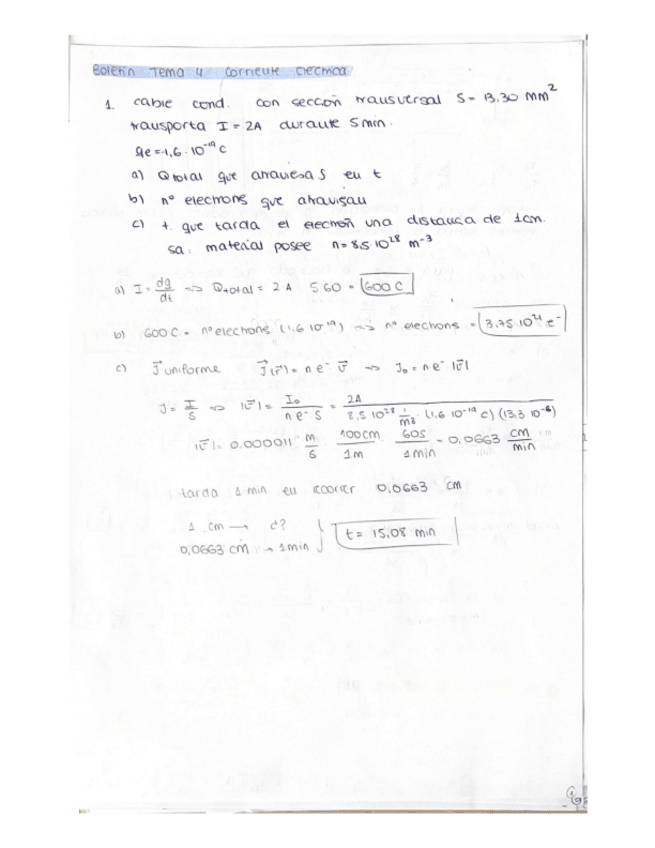 Boletín Tema 4 Corriente Eléctrica
1. cable cond. con sección transversal S = 13.30 mm²
transporta I = 2A durante 5 min.
qe = -1,6 · 10⁻¹⁹ C
a) Qtotal que atraviesa S en t
b) nº electrons que atraviesan
c) t. que tarda el electrón una distancia de 1cm.
sa: material posee n = 8,5 · 10²⁸ m⁻³
a) I = dq/dt => Qtotal = 2 A 5 60 = 600 C
b) 600 C = nº electrons (1,6 10⁻¹⁹) => nº electrons = 3,75 10²¹ e⁻
c) J⃗ uniforme J⃗(r⃗) = n e⁻ v⃗ => J₀ = n e⁻ |v⃗|
J = I/S => |v⃗| = I₀/(n e⁻ S) = 2A/(8,5 10²⁸ 1/m³ · (1,6 10⁻¹⁹ C) (13,3 10⁻⁶))
|v⃗| = 0.000011 m/s 100cm/1m 60s/1min = 0,0663 cm/min
tarda 1 min en recorrer 0,0663 cm
1 cm → d?
0,0663 cm → 1min } t = 15,08 min